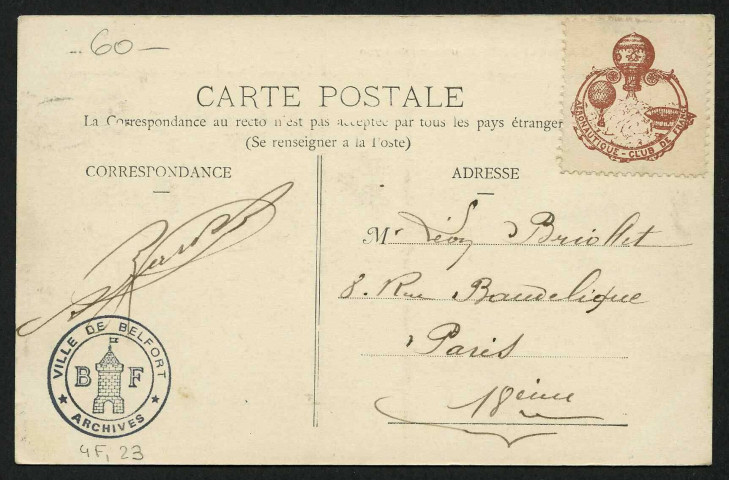 60
CARTE POSTALE
La Correspondance au recto n'est pas acceptée par tous les pays étranger
(Se renseigner a la Poste)
CORRESPONDANCE
ADRESSE
AÉRONAUTIQUE - CLUB DE FRANCE
Mr Léon Briollet
8. Rue Baudelique
Paris
18eme
VILLE DE BELFORT
B F
ARCHIVES
4F, 23